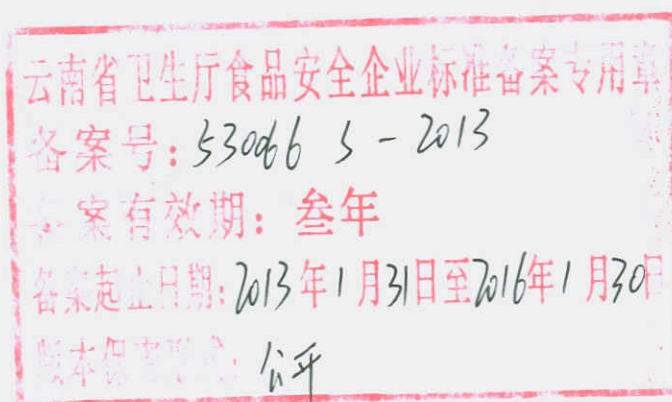 云南省卫生厅食品安全企业标准备案专用章
备案号:530066 S-2013
备案有效期:叁年
备案起止日期:2013年1月31日至2016年1月30日
版本保密形式:公开